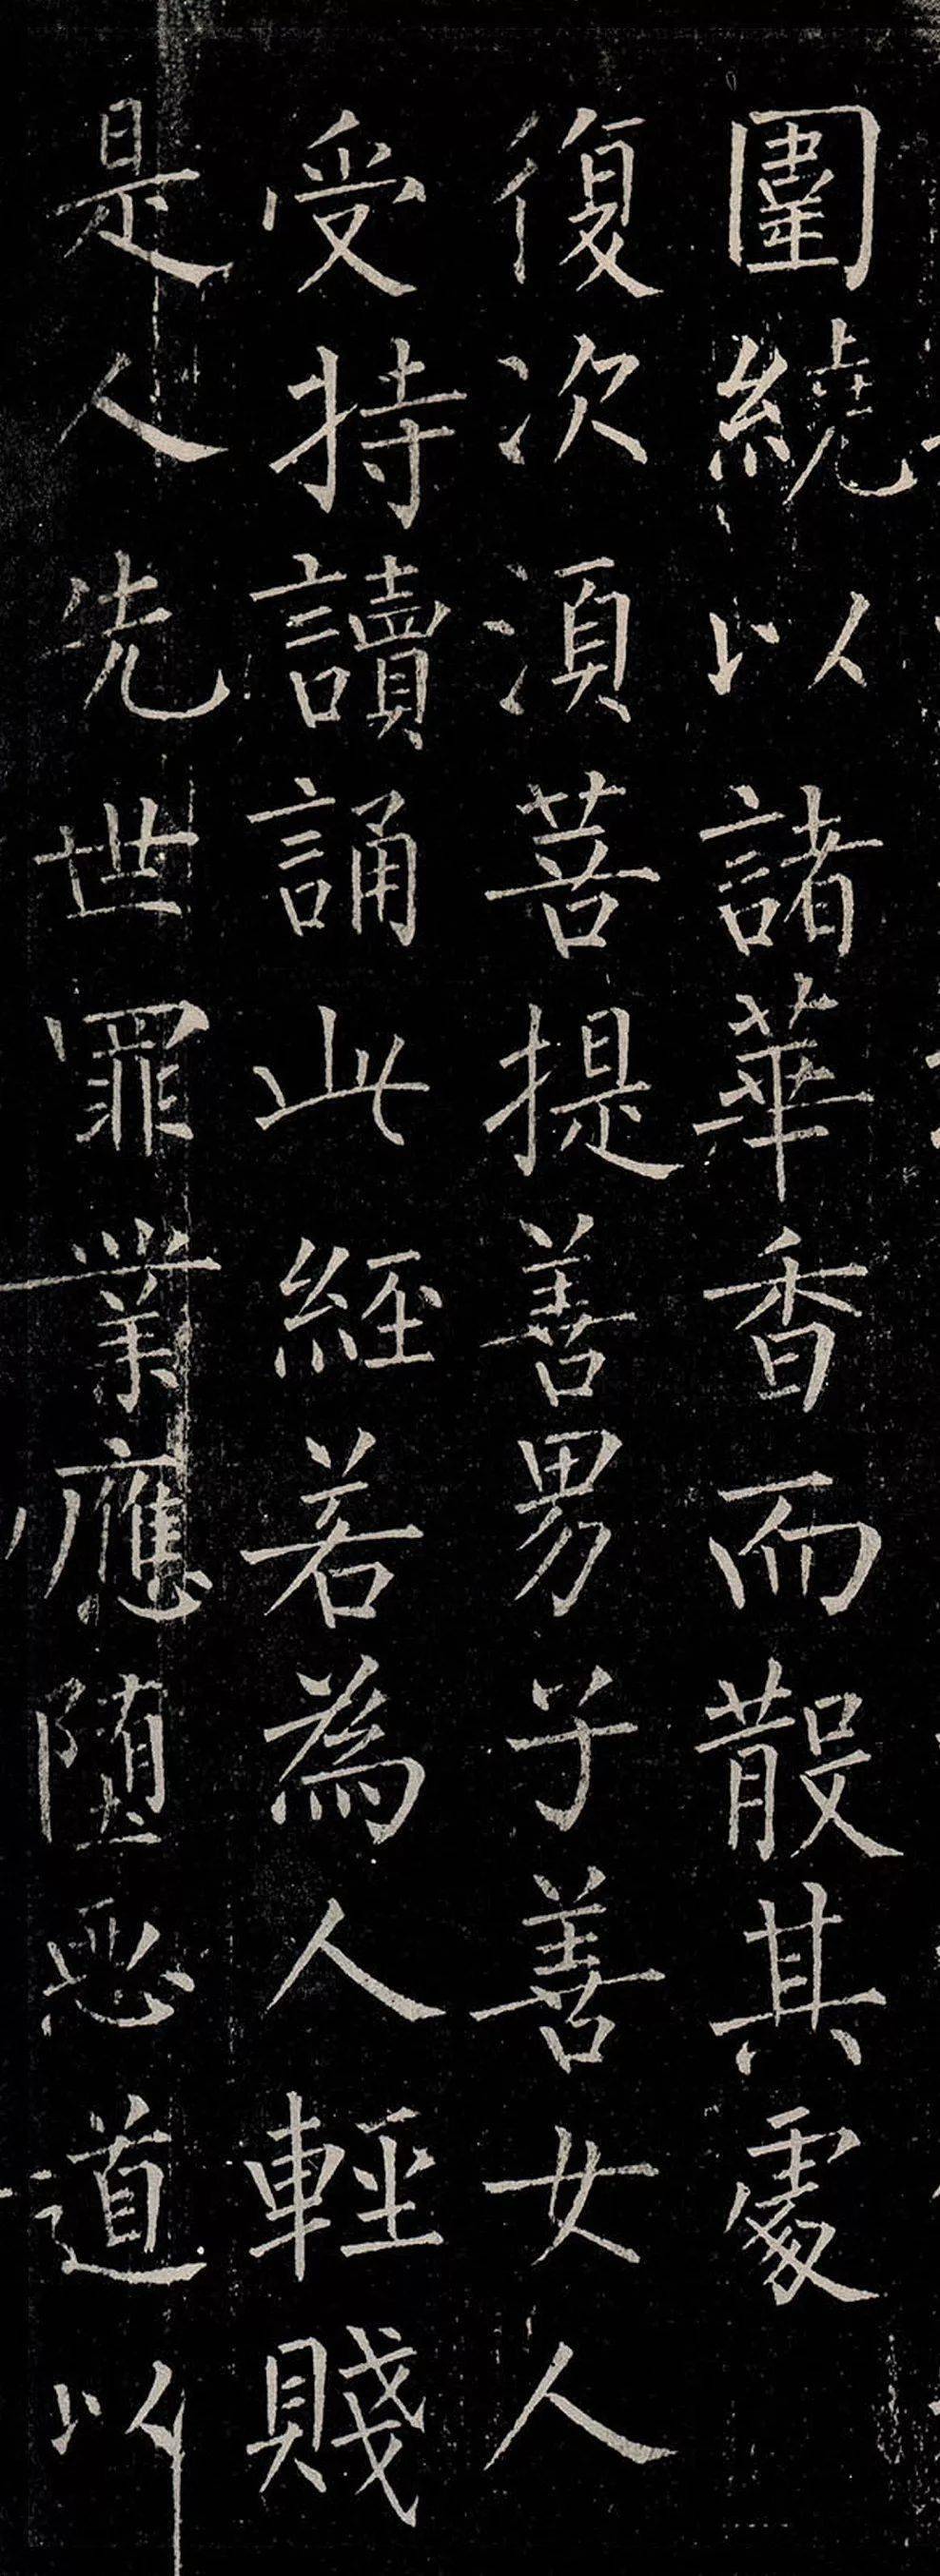 圍繞以諸華香而散其處
復次湏菩提善男子善女人
受持讀誦此經若為人輕賤
是人先世罪業應墮惡道以